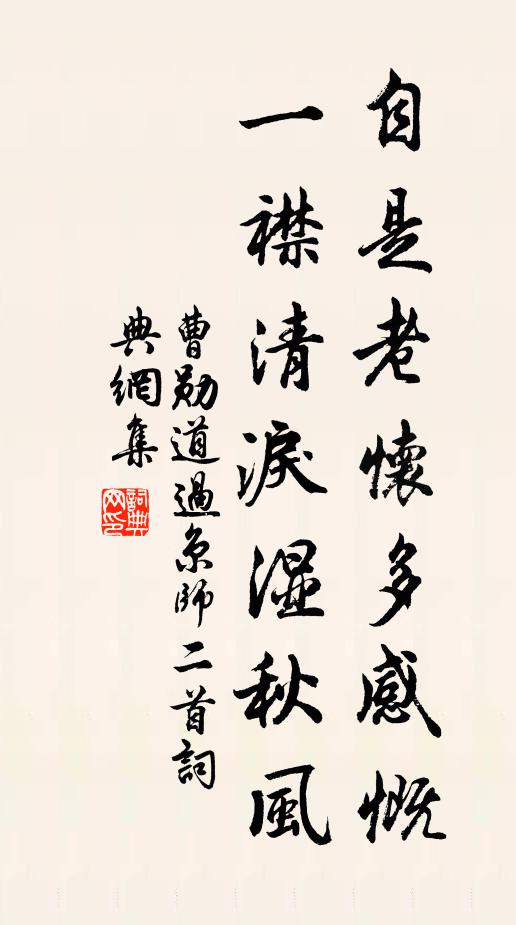 自是老懷多感慨
一襟清淚湿秋風
曹勛道過京師二首詞
典網集
詞典
网印